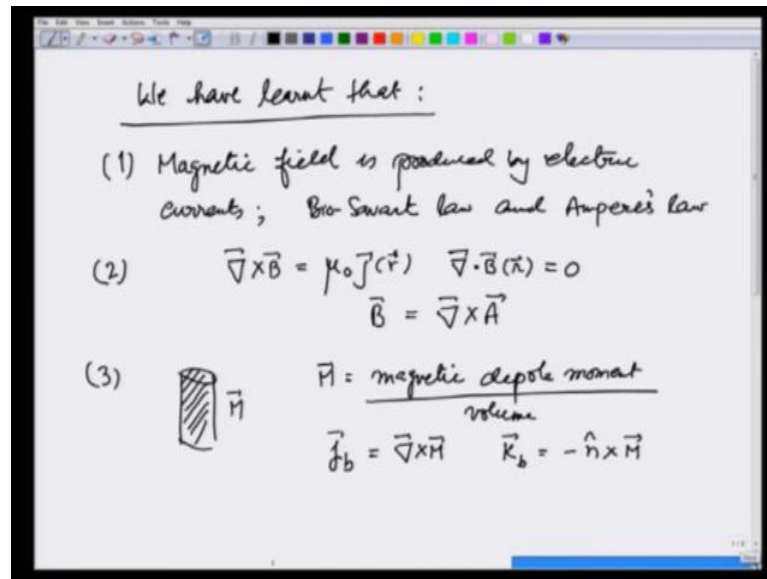 File Edit View Insert Actions Tools Help
We have learnt that :
(1) Magnetic field is produced by electric
currents ; Bio-Savart law and Ampere's law
(2) ∇⃗ × B⃗ = μ₀ J⃗(r⃗) ∇⃗ · B⃗(r⃗) = 0
B⃗ = ∇⃗ × A⃗
(3) M⃗ M⃗ = magnetic dipole moment
volume
j⃗_b = ∇⃗ × M⃗ K⃗_b = - n̂ × M⃗